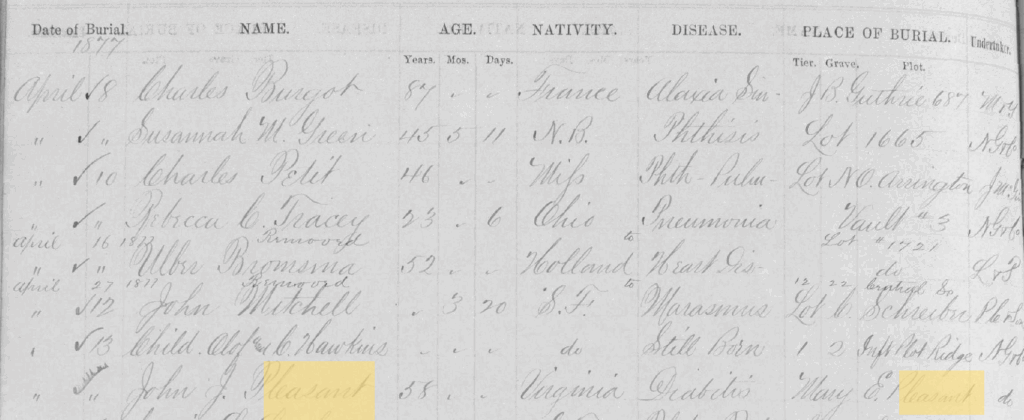 Date of Burial. NAME. AGE. NATIVITY. DISEASE. PLACE OF BURIAL. Undertaker.
1877
Years. Mos. Days. Tier. Grave. Plot.
April 8 Charles Burgot 87 " " France Ataxia J B Guthrie 687
" " Susannah M. Green 45 5 11 N.B. Phthisis Lot 1665
" 10 Charles Petit 46 " " Miss Phth- Pulm- Lot N.O. Arrington
" " Rebecca C. Tracey 23 " 6 Ohio Pneumonia Vault # 3
April 16 1877 Removed to Lot # 1721
" " Ulber Bromsma 52 " " Holland Heart Dis- do
April 27 1877 Removed to 12 22 Central
" 12 John Mitchell " 3 20 S.F. Marasmus Lot C. Schreiber
" 13 Child. of C. Hawkins " " " do Still Born 1 2 Inft Plot Ridge
" " John J. Pleasant 58 " " Virginia Diabitis Mary E. Pleasant do